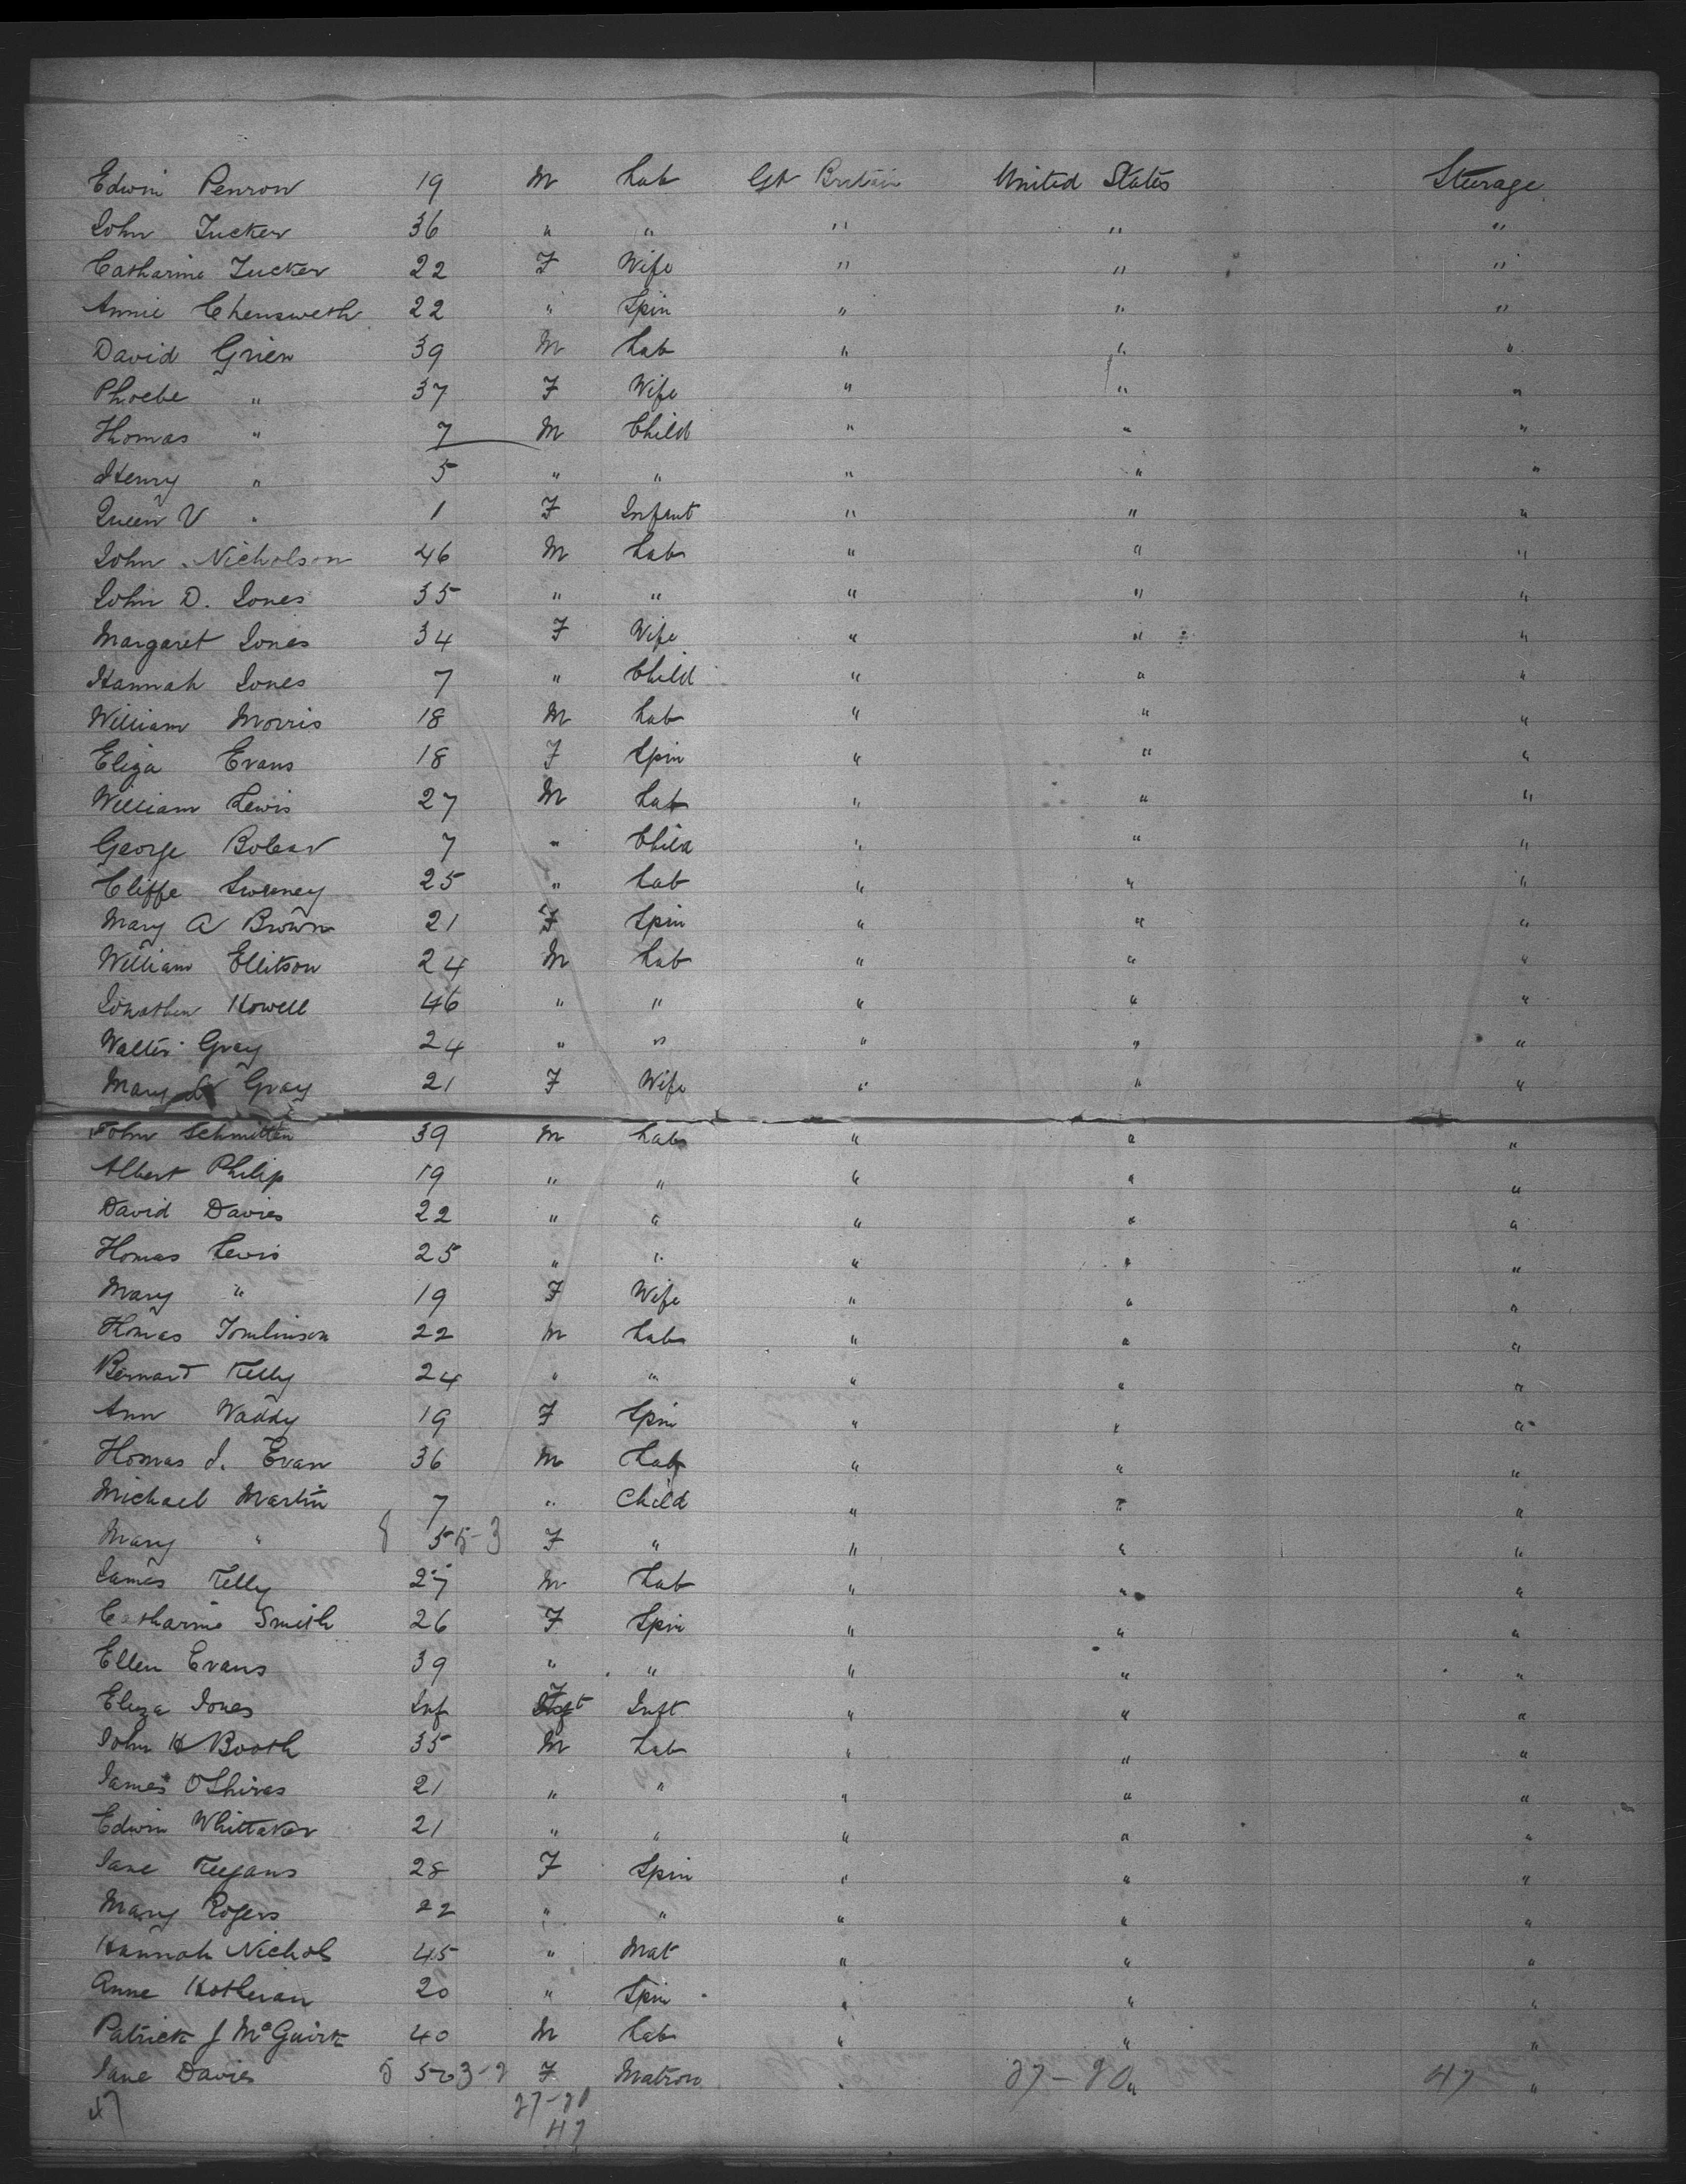 Edwin Penrow 19 M Lab Gt Britain United States Steerage
John Tucker 36 " " " " "
Catharine Tucker 22 F Wife " " "
Annie Chensweth 22 " Spin " " "
David Grien 39 M Lab " " "
Phoebe " 37 F Wife " " "
Thomas " 7 M Child " " "
Henry " 5 " " " " "
Queen V " 1 F Infant " " "
John Nicholson 46 M Lab " " "
John D. Jones 35 " " " " "
Margaret Jones 34 F Wife " " "
Hannah Jones 7 " Child " " "
William Morris 18 M Lab " " "
Eliza Evans 18 F Spin " " "
William Lewis 27 M Lab " " "
George 7 " Child " " "
Cliffe Sweeney 25 " Lab " " "
Mary A Brown 21 F Spin " " "
William Ellitson 24 M Lab " " "
Jonathan Howell 46 " " " " "
Walter Gray 24 " " " " "
Mary Gray 21 F Wife " " "
John Schmitten 39 M Lab " " "
Albert Philip 19 " " " " "
David Davies 22 " " " " "
Thomas Lewis 25 " " " " "
Mary " 19 F Wife " " "
Thomas Tomlinson 22 M Lab " " "
Bernard Kelly 24 " " " " "
Ann Waddy 19 F Spin " " "
Thomas J. Evan 36 M Lab " " "
Michael Martin 7 " Child " " "
Mary " 8 5 5-3 F " " " "
James Kelly 27 M Lab " " "
Catharine Smith 26 F Spin " " "
Ellen Evans 39 " " " " "
Eliza Jones Inf F Inft " " "
John H Booth 35 M Lab " " "
James OShires 21 " " " " "
Edwin Whittaker 21 " " " " "
Jane Keegans 28 F Spin " " "
Mary Rogers 22 " " " " "
Hannah Nichols 45 " Mat " " "
Anne Hotheran 20 " Spin " " "
Patrick J McGuirk 40 M Lab " " "
Jane Davies 5 50 3-2 F Matron " 27-20 " 47 "
47 27-20
47